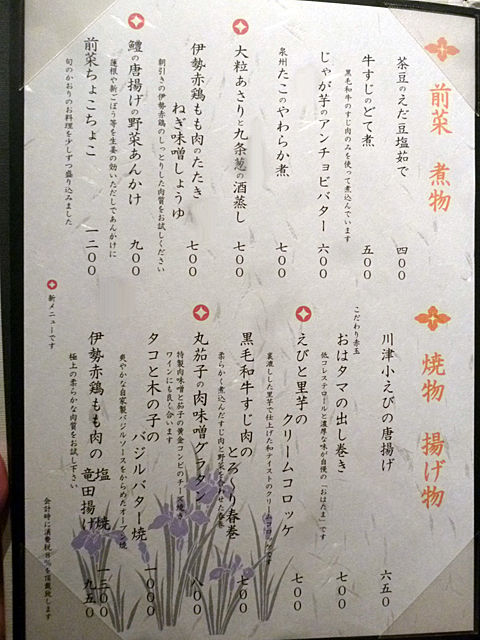 前菜 煮物
茶豆のえだ豆塩茹で 四００
牛すじのどて煮 五００
黒毛和牛のすじ肉のみを使って煮込んでいます
じゃが芋のアンチョビバター 六００
泉州たこのやわらか煮 七００
大粒あさりと九条葱の酒蒸し 七００
伊勢赤鶏もも肉のたたき
ねぎ味噌しょうゆ 七００
朝引きの伊勢赤鶏のしっとりした肉質をお試しください
鱧の唐揚げの野菜あんかけ 九００
蓮根や新ごぼう等を生姜の効いただしであんかけに
前菜ちょこちょこ 一二００
旬のかおりのお料理を少しずつ盛り込みました
焼物 揚げ物
川津小えびの唐揚げ 六五０
こだわり赤玉
おはタマの出し巻き 七００
低コレステロールと濃厚な味が自慢の「おはたま」です
えびと里芋の
クリームコロッケ 七００
裏漉しした里芋で仕上げた和テイストのクリームコロッケです
黒毛和牛すじ肉の
とろ〜り春巻 七００
柔らかく煮込んだすじ肉と野菜を合わせた春巻
丸茄子の肉味噌グラタン 八００
特製肉味噌と茄子の黄金コンビのチーズ焼き
ワインにも良く合います
タコと木の子の
バジルバター焼 一０００
爽やかな自家製バジルソースをからめたオーブン焼
伊勢赤鶏もも肉の 塩焼 一三００
竜田揚げ 九五０
極上の柔らかな肉質をお試し下さい
新メニューです
会計時に消費税８％を頂戴致します